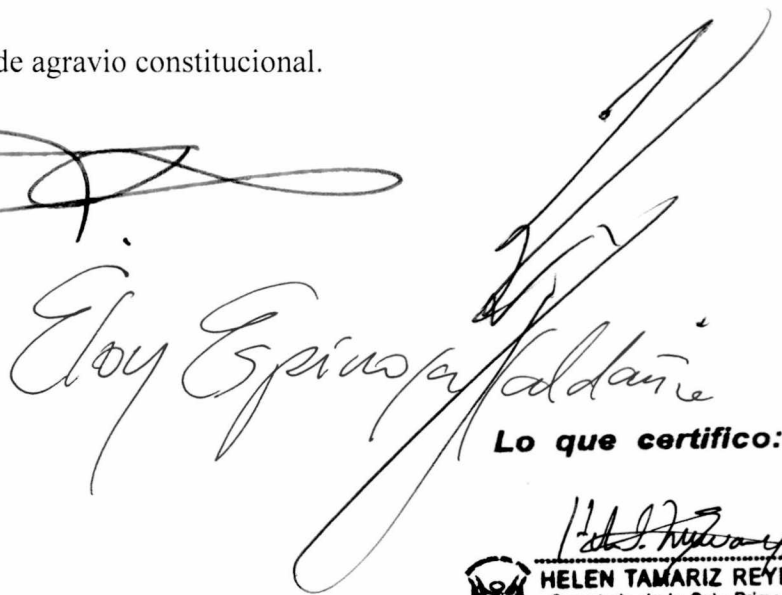 de agravio constitucional.
Eloy Espinosa Saldaña
Lo que certifico:
HELEN TAMARIZ REY